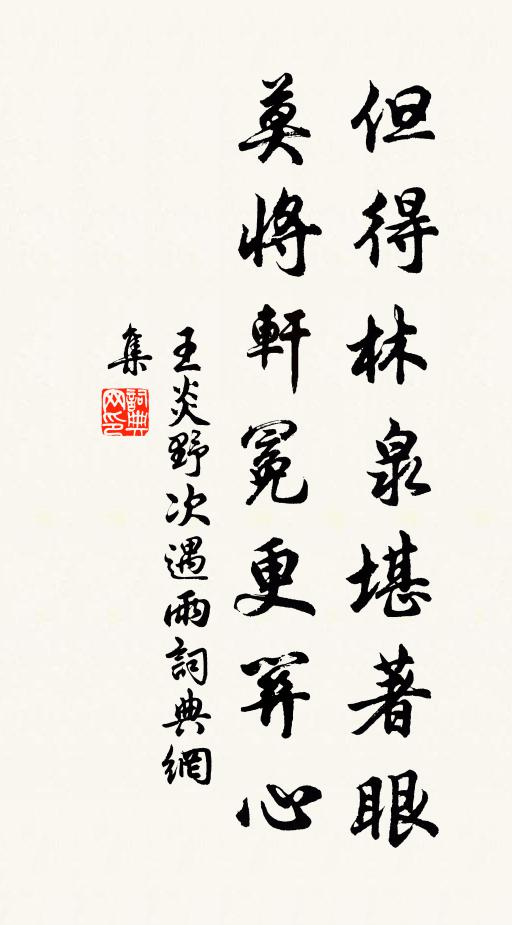 但得林泉堪著眼
莫將軒冕更關心
王炎野次遇雨詞典網
集
詞典
网印